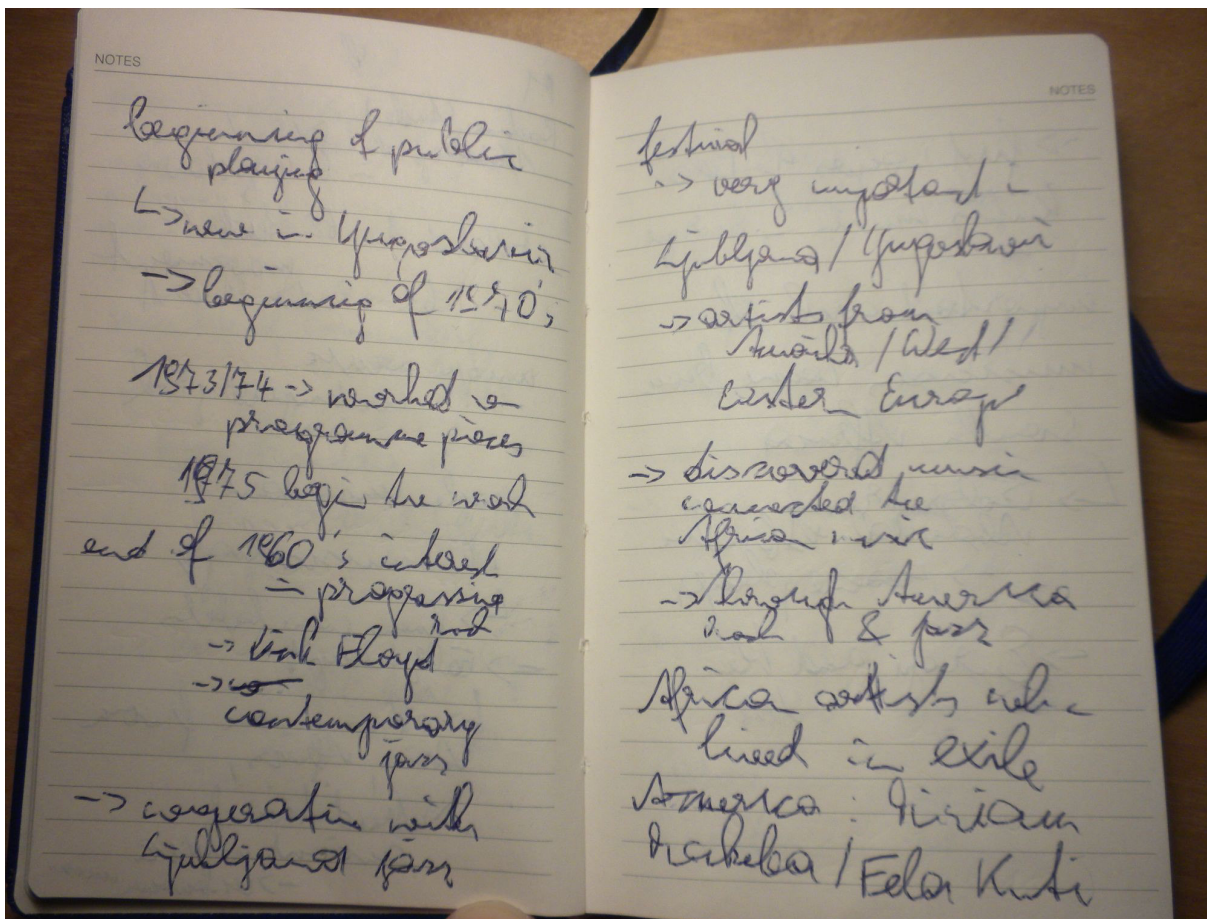 NOTES
beginning of public
playing
↳ new in Yugoslavia
-> beginning of 1970's
1973/74 -> worked on
programme pieces
1975 begin the work
end of 1960's interest
in progressive
rock
-> Pink Floyd
->
contemporary
jazz
-> cooperation with
Ljubljana jazz
NOTES
festival
-> very important in
Ljubljana / Yugoslavia
-> artists from
America / West /
Eastern Europe
-> discovered music
connected to
African music
-> through America
rock & jazz
African artists who
lived in exile
America: Miriam
Makeba / Fela Kuti